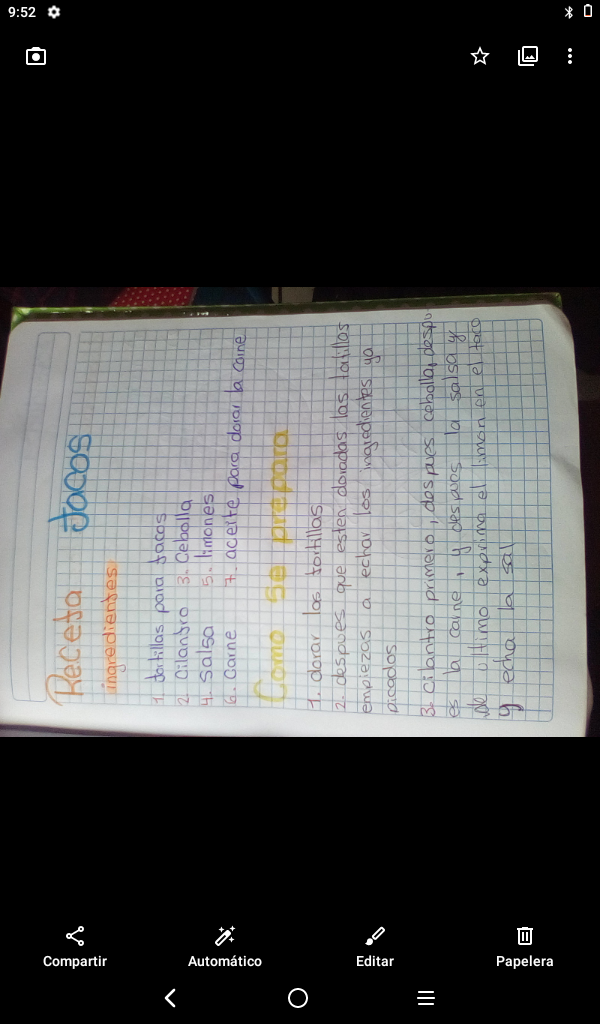 9:52
Receta tacos
ingredientes
1. tortillas para tacos
2 Cilantro 3. Cebolla
4. Salsa 5. limones
6. Carne 7. aceite para dorar la carne
Como se prepara
1. dorar las tortillas
2. despues que esten doradas las tortillas
empiezas a echar los ingredientes ya
picados
3. Cilantro primero, despues cebolla, despu
es la carne, y despues la salsa y
de ultimo exprima el limon en el taco
y echa la sal
Compartir Automático Editar Papelera